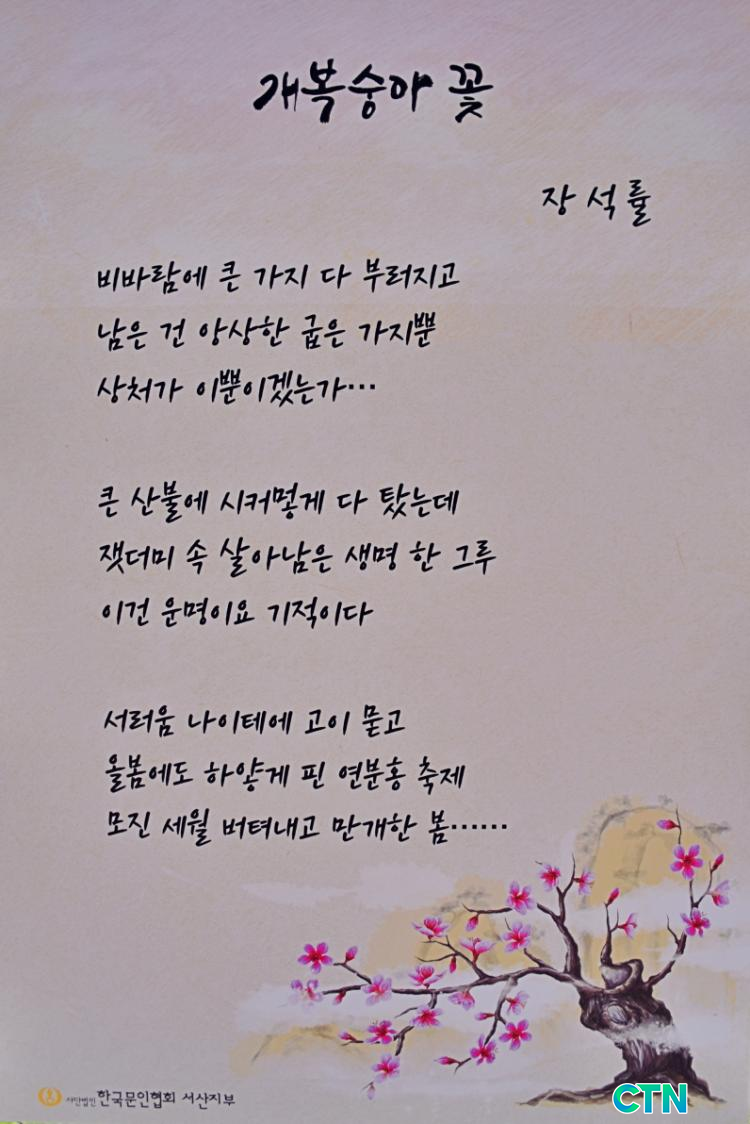 개복숭아 꽃
장석률
비바람에 큰 가지 다 부러지고
남은 건 앙상한 굽은 가지뿐
상처가 이뿐이겠는가…
큰 산불에 시커멓게 다 탔는데
잿더미 속 살아남은 생명 한 그루
이건 운명이요 기적이다
서러움 나이테에 고이 묻고
올봄에도 하얗게 핀 연분홍 축제
모진 세월 버텨내고 만개한 봄……
사단법인 한국문인협회 서산지부
CTN